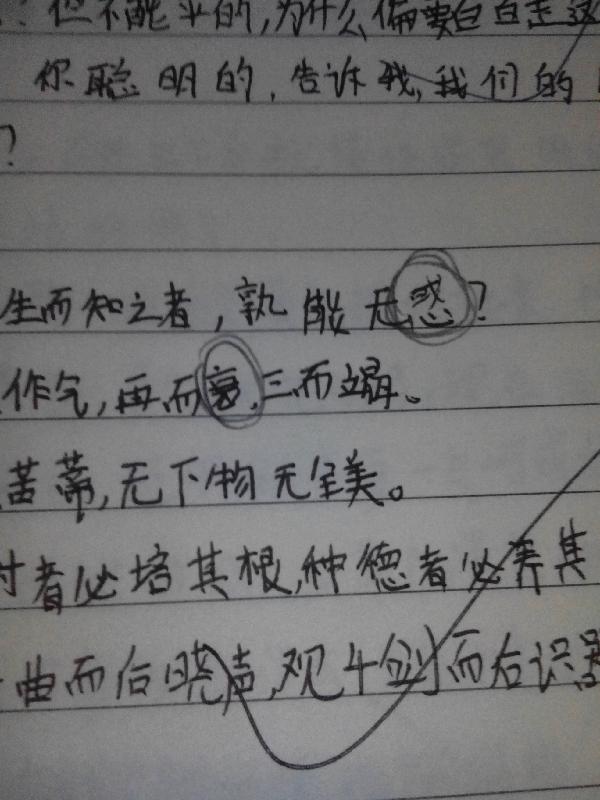 但不能平的,为什么偏要白白走这
你聪明的,告诉我,我们的
?
生而知之者,孰能无惑?
作气,再而衰,三而竭。
苦蒂,无下物无全美。
者必培其根,种德者必养其
曲而后晓声,观千剑而后识器